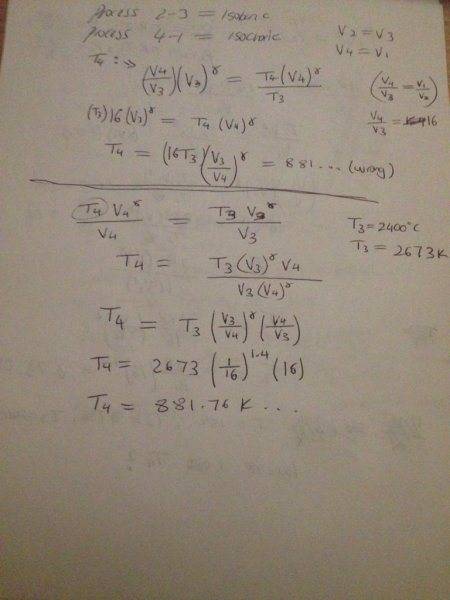 process 2-3 = isobaric
process 4-1 = isochoric
V2 = V3
V4 = V1
T4 :→
(V4/V3)(V3)^γ = T4(V4)^γ/T3
(V4/V3 = V1/V2)
(T3)16(V3)^γ = T4(V4)^γ
V4/V3 = 16
T4 = (16T3)(V3/V4)^γ = 881... (wrong)
T4 V4^γ/V4 = T3 V3^γ/V3
T3 = 2400°C
T3 = 2673K
T4 = T3(V3)^γ V4/V3(V4)^γ
T4 = T3(V3/V4)^γ(V4/V3)
T4 = 2673(1/16)^1.4(16)
T4 = 881.76 K...